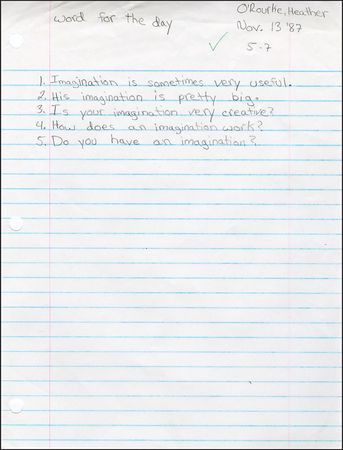 Word for the day
O'Rourke, Heather
Nov. 13 '87
5-7
1. Imagination is sometimes very useful.
2. His imagination is pretty big.
3. Is your imagination very creative?
4. How does an imagination work?
5. Do you have an imagination?